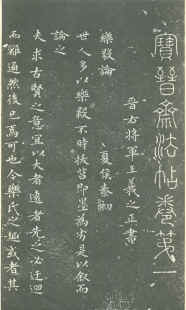 寶晉齋法帖卷第一
晉右將軍王羲之正書
樂毅論
夏侯泰初
世人多以樂毅不時拔莒即墨為劣是以叙而
論之
夫求古賢之意宜以大者遠者先之必迂迴
而難通然後已焉可也今樂氏之趣或者其